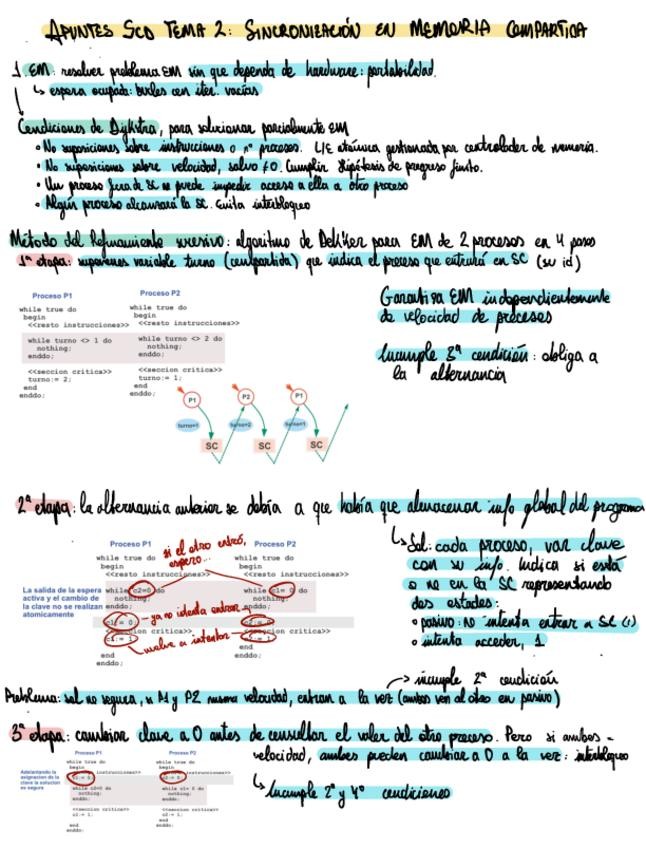 APUNTES SCD TEMA 2: SINCRONIZACIÓN EN MEMORIA COMPARTIDA
1. EM: resolver problema EM sin que dependa de hardware: portabilidad.
↳ espera ocupada: bucles con iter. vacías
Condiciones de Dijkstra, para solucionar parcialmente EM
• No suposiciones sobre instrucciones o nº procesos. L/E atómica gestionada por controlador de memoria.
• No suposiciones sobre velocidad, salvo ≠0. Cumplir hipótesis de progreso finito.
• Un proceso fuera de SC no puede impedir acceso a ella a otro proceso
• Algún proceso alcanzará la SC. Evita interbloqueo
Método del Refinamiento sucesivo: algoritmo de Dekker para EM de 2 procesos en 4 pasos
1ª etapa: suponemos variable turno (compartida) que indica el proceso que entrará en SC (su id)
Proceso P1
while true do
begin
<<resto instrucciones>>
while turno <> 1 do
nothing;
enddo;
<<seccion critica>>
turno:= 2;
end
enddo;
Proceso P2
while true do
begin
<<resto instrucciones>>
while turno <> 2 do
nothing;
enddo;
<<seccion critica>>
turno:= 1;
end
enddo;
Garantiza EM independientemente
de velocidad de procesos
Incumple 3ª condición: obliga a
la alternancia
P1 P2 P1
turno=1 turno=2 turno=1
SC SC SC
2ª etapa: la alternancia anterior se debía a que había que almacenar info global del programa
↳ Sol: cada proceso, var clave
con su info. Indica si está
o no en la SC representando
dos estados:
• pasivo: no intenta entrar a SC (1)
• intenta acceder, 1
La salida de la espera
activa y el cambio de
la clave no se realizan
atomicamente
Proceso P1
while true do
begin
<<resto instrucciones>>
while c2=0 do
nothing;
enddo;
c1:= 0;
<<seccion critica>>
c1:= 1;
end
enddo;
Proceso P2
while true do
begin
<<resto instrucciones>>
while c1= 0 do
nothing;
enddo;
c2:= 0;
<<seccion critica>>
c2:= 1;
end
enddo;
si el otro entró,
espero...
ya no intenta entrar
vuelve a intentar
→ incumple 2ª condición
Problema: sol no segura, si P1 y P2 misma velocidad, entran a la vez (ambos ven al otro en pasivo)
3ª etapa: cambiar clave a 0 antes de consultar el valor del otro proceso. Pero si ambos =
velocidad, ambos pueden cambiar a 0 a la vez: interbloqueo
↳ Incumple 2ª y 4ª condiciones
Adelantando la
asignacion de la
clave la solucion
es segura
Proceso P1
while true do
begin
<<resto instrucciones>>
c1:= 0;
while c2=0 do
nothing;
enddo;
<<seccion critica>>
c1:= 1;
end
enddo;
Proceso P2
while true do
begin
<<resto instrucciones>>
c2:= 0;
while c1= 0 do
nothing;
enddo;
<<seccion critica>>
c2:= 1;
end
enddo;